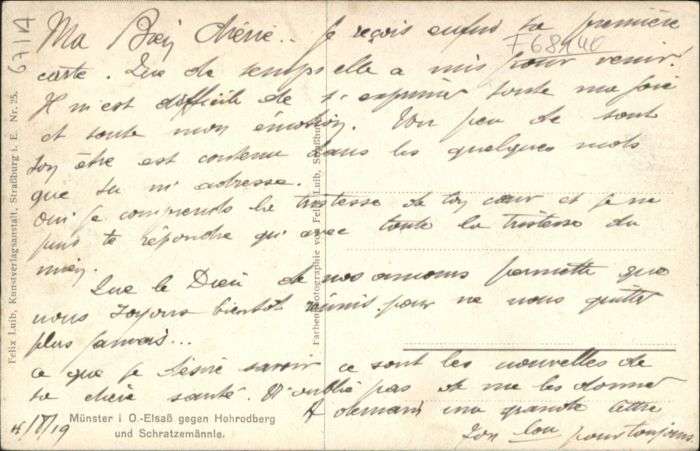 Ma Boëy chérie.. Je reçois enfin ta première
carte. Que de temps elle a mis pour venir.
Il m'est difficile de t'exprimer toute ma joie
et toute mon émotion. Un peu de tout
ton être est contenu dans les quelques mots
que tu m'adresse.
Oui je comprends la tristesse de ton cœur et je ne
puis te répondre qu'avec toute la tristesse du
mien.
Que le Dieu de nos amours permette que
nous soyons bientôt réunis pour ne nous quitter
plus jamais...
Ce que je désire savoir ce sont les nouvelles de
ta chère santé. N'oublie pas de me les donner
A demain une grande lettre
Ton Lou pour toujours
4/V/19
67/A
F68140
Felix Luib, Kunstverlagsanstalt, Straßburg i. E. Nr. 25.
Farbenphotographie von Felix Luib, Straßbu
Münster i O.-Elsaß gegen Hohrodberg
und Schratzemännle.